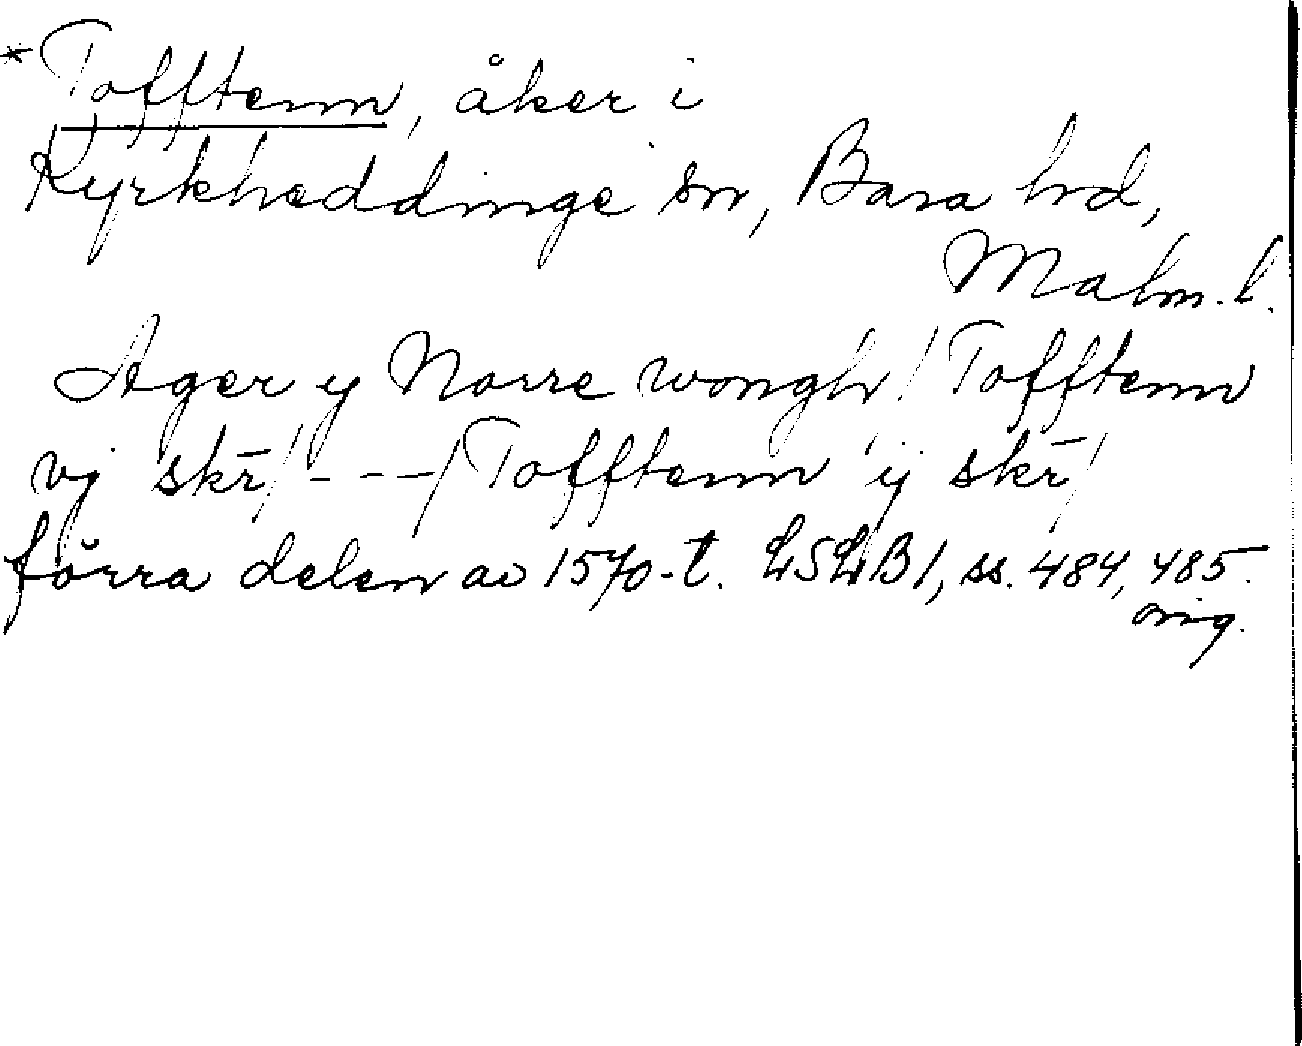 *Tofftenn, åker i
Kyrkheddinge sn, Bara hd,
Malm. l.
Ager y Norre wongh / Tofftenn
vj skr̄ / - - - / Tofftenn ij skr̄ /
förra delen av 1570-t. LSLB1, ss. 484, 485.
orig.